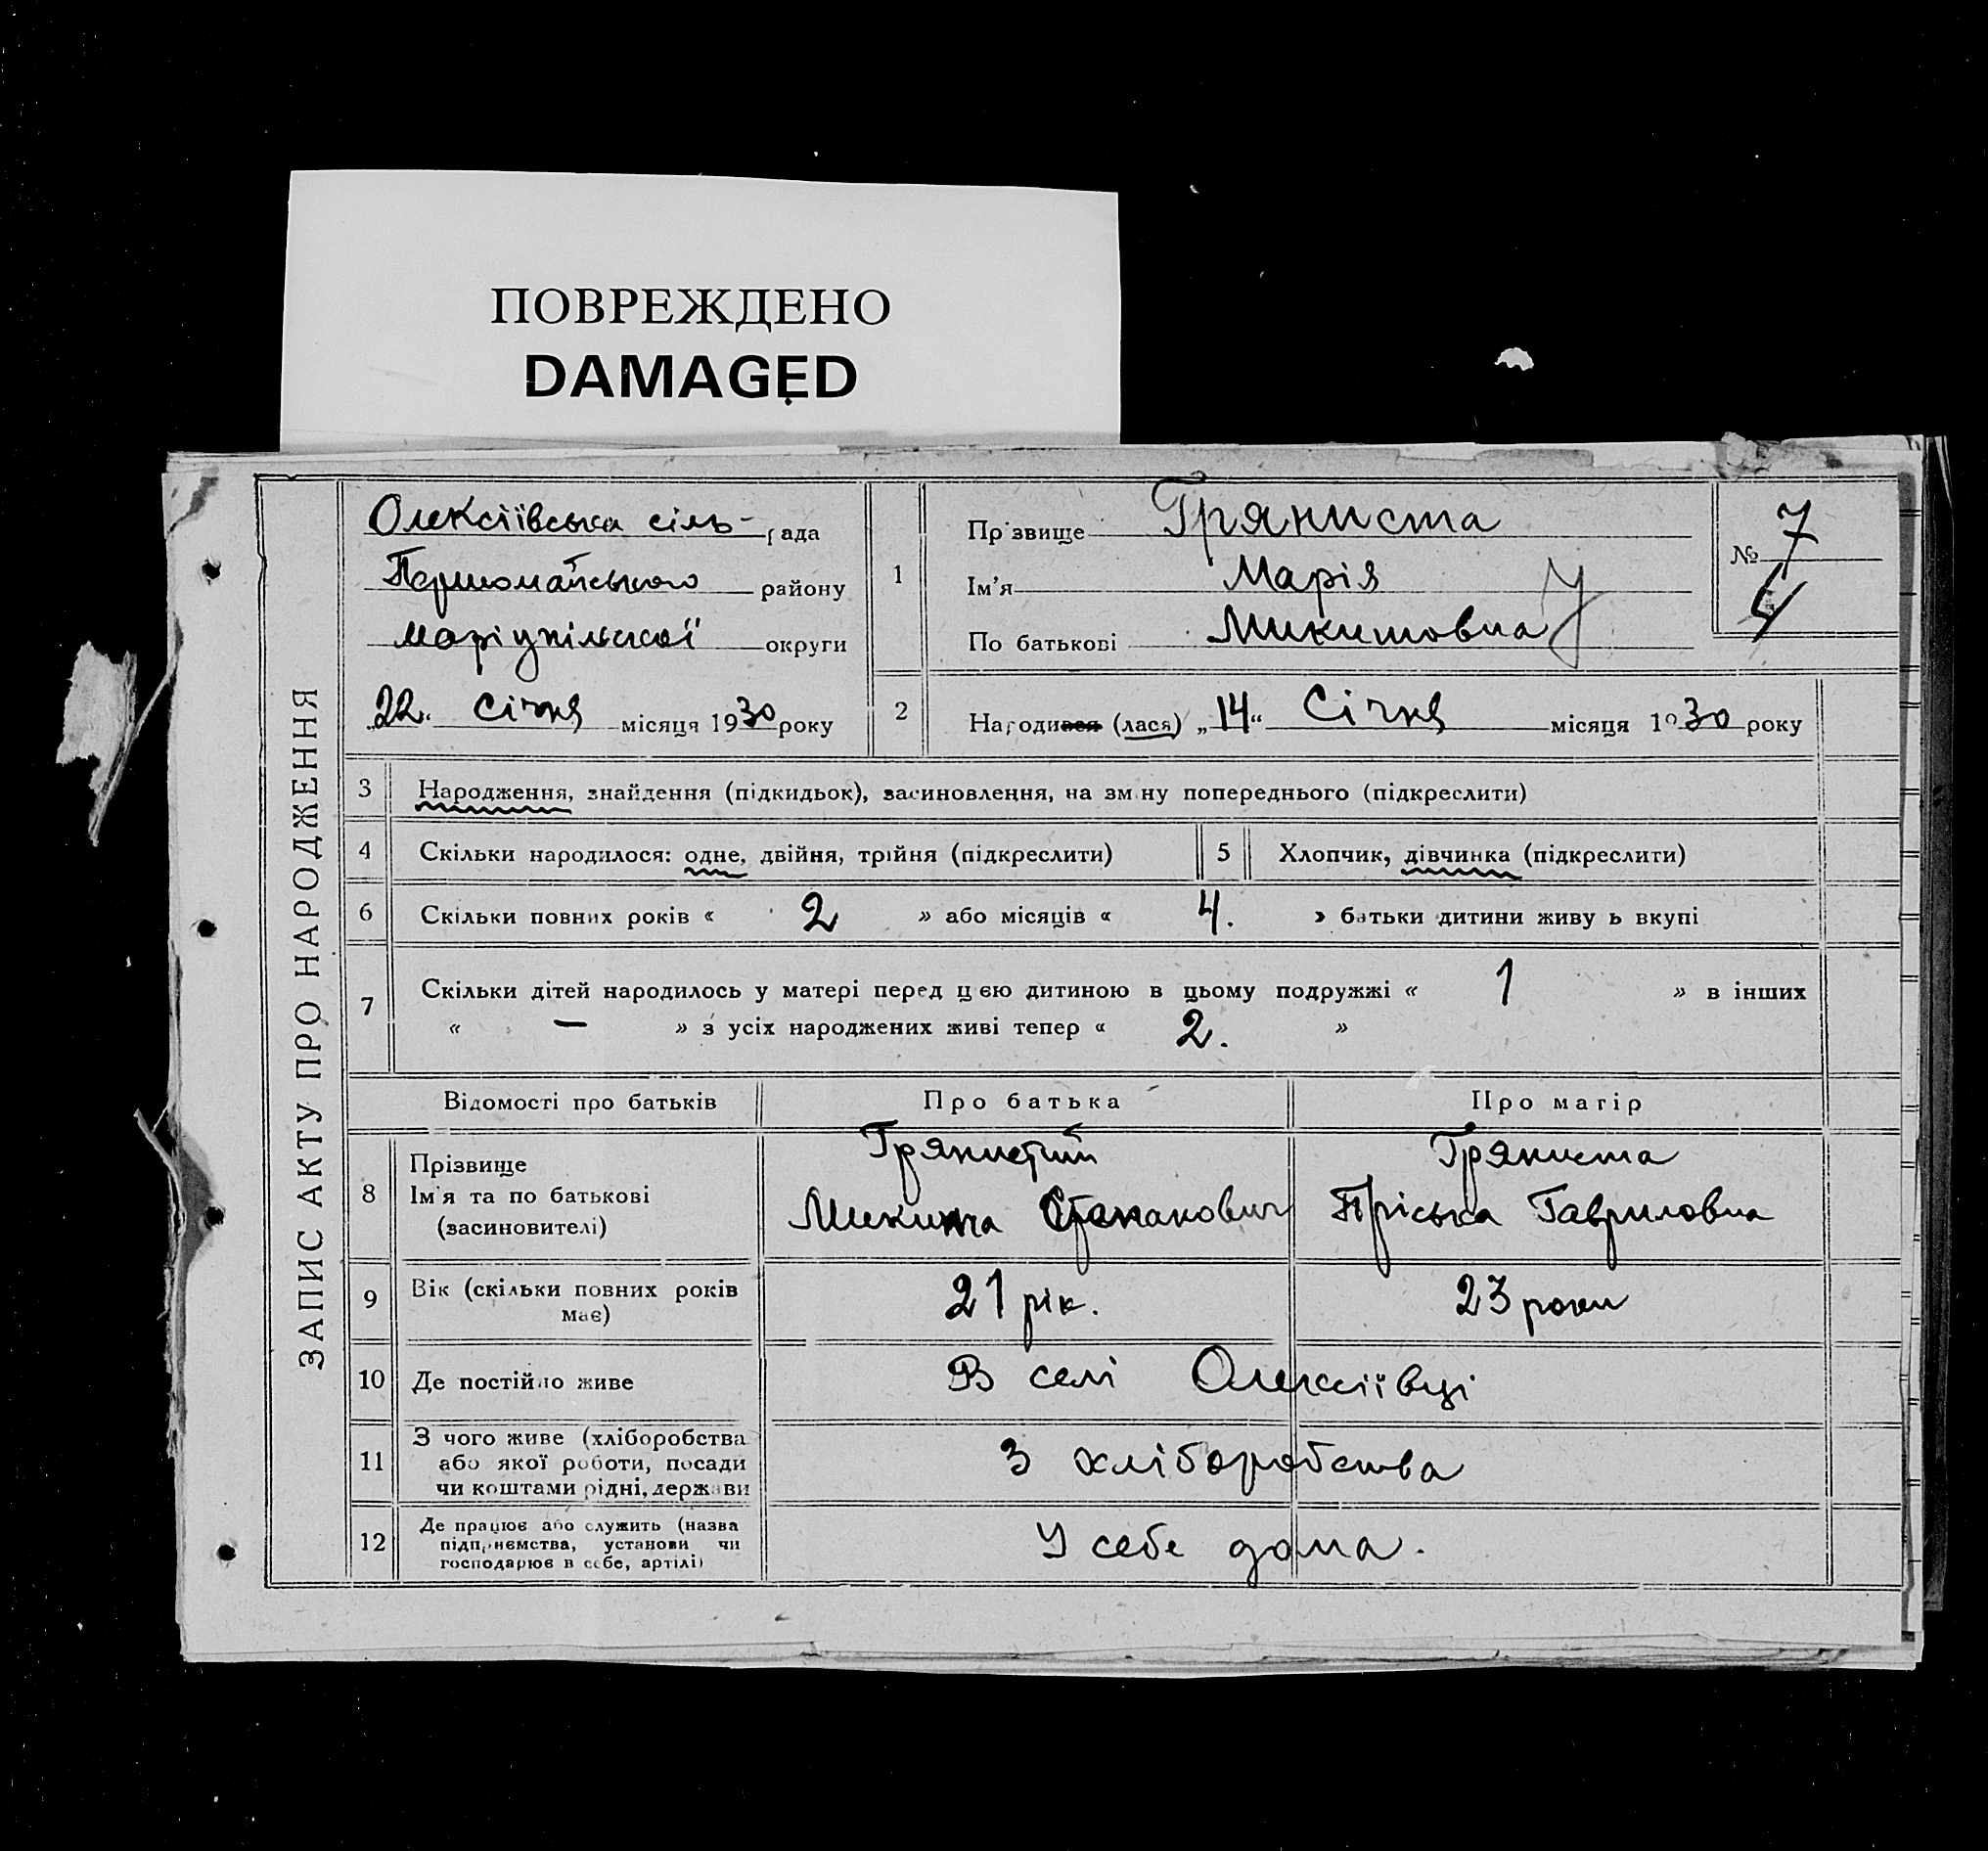 ПОВРЕЖДЕНО
DAMAGED
ЗАПИС АКТУ ПРО НАРОДЖЕННЯ
Олексіївська сіль- рада
Першомайського району
Маріупільської округи
22 Січня місяця 1930 року
1
Прізвище Гряниста
Ім'я Марія
По батькові Микитовна
№ 7
2
Народився (лася) „14“ Січня місяця 1930 року
3 Народження, знайдення (підкидьок), засиновлення, на зміну попереднього (підкреслити)
4 Скільки народилося: одне, двійня, трійня (підкреслити)
5 Хлопчик, дівчинка (підкреслити)
6 Скільки повних років « 2 » або місяців « 4. » батьки дитини живуть вкупі
7 Скільки дітей народилось у матері перед цією дитиною в цьому подружжі « 1 » в інших
« — » з усіх народжених живі тепер « 2. »
Відомості про батьків Про батька Про матір
8 Прізвище
Ім'я та по батькові
(засиновителі)
Грянистий
Микита Степанович
Гряниста
Пріська Гавриловна
9 Вік (скільки повних років
має)
21 рік.
23 роки
10 Де постійно живе В селі Олексіївці
11 З чого живе (хліборобства
або якої роботи, посади
чи коштами рідні, держави
З хліборобства
12 Де працює або служить (назва
підприємства, установи чи
господарює в себе, артілі)
У себе дома.